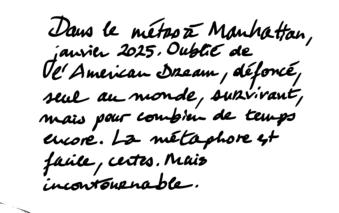 Dans le métro à Manhattan,
janvier 2025. Oublié de
l'American Dream, défoncé,
seul au monde, survivant,
mais pour combien de temps
encore. La métaphore est
facile, certes. Mais
incontournable.